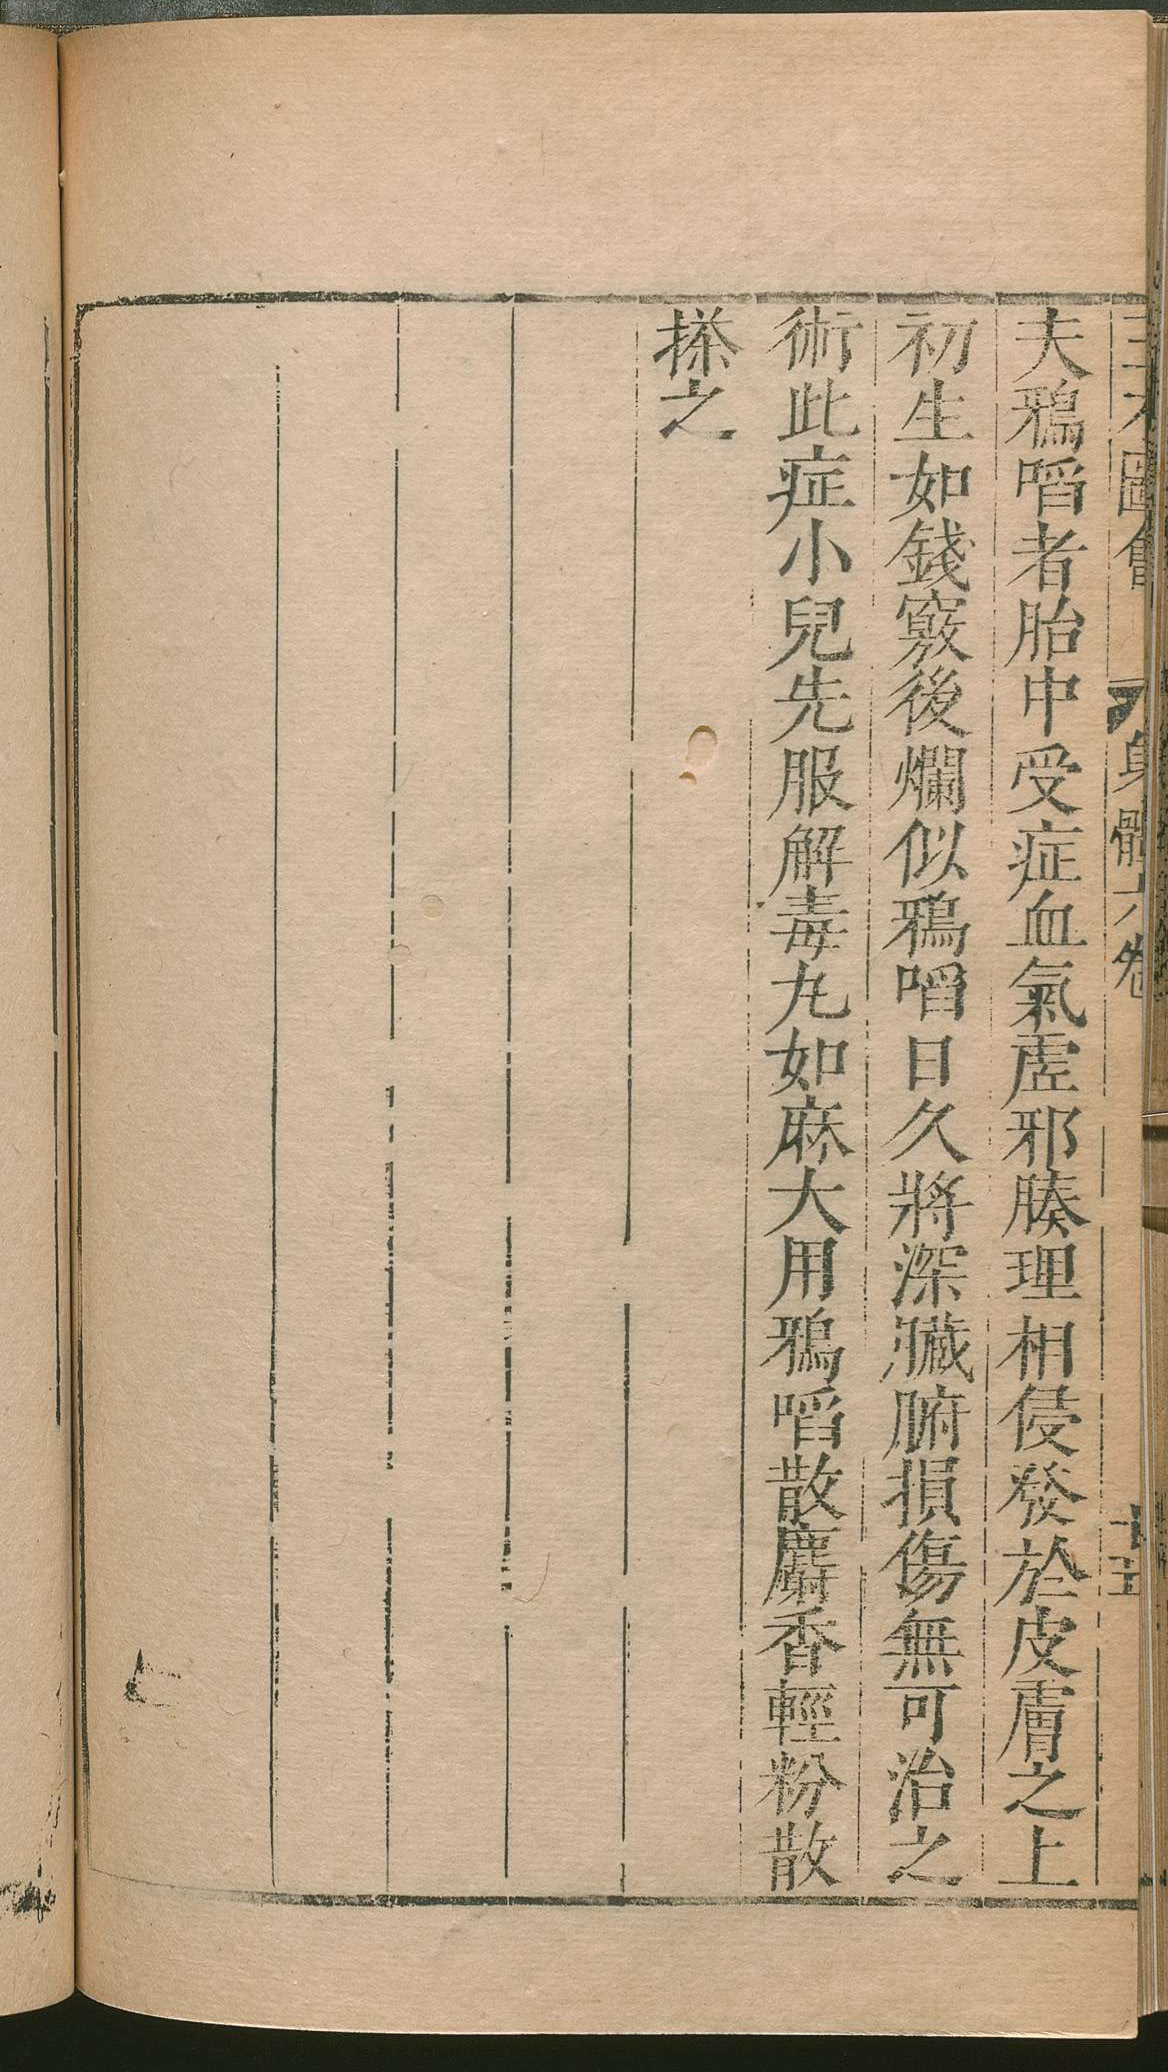 三才圖會 身體六卷 十五
夫鴉啗者胎中受症血氣虛邪腠理相侵發於皮膚之上
初生如錢竅後爛似鴉啗日久將深臟腑損傷無可治之
術此症小兒先服解毒丸如麻大用鴉啗散麝香輕粉散
搽之